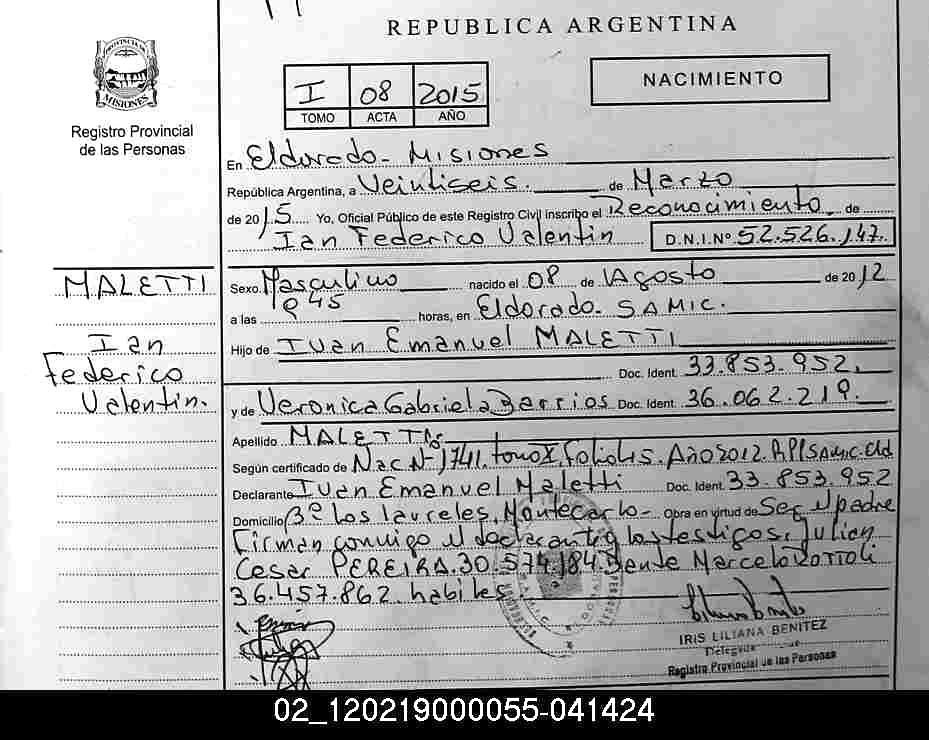 REPUBLICA ARGENTINA
PROVINCIA DE
MISIONES
Registro Provincial
de las Personas
I 08 2015
TOMO ACTA AÑO
NACIMIENTO
En Eldorado - Misiones
República Argentina, a Veintiseis. de Marzo
de 2015 Yo, Oficial Público de este Registro Civil inscribo el Reconocimiento de
Ian Federico Valentin D.N.I.Nº 52.526.147.
MALETTI
Ian
Federico
Valentin.
Sexo Masculino nacido el 08 de Agosto de 2012
a las 945 horas, en Eldorado SAMIC.
Hijo de Ivan Emanuel MALETTI
Doc. Ident. 33.853.952.
y de Veronica Gabriela Barrios Doc. Ident. 36.062.219.
Apellido MALETTI
Según certificado de Nac Nº 1741. tomo X. folio 15. Año 2012. Eld
Declarante Ivan Emanuel Maletti Doc. Ident. 33.853.952
Domicilio Bº los laureles, Montecarlo - Obra en virtud de Ser el padre
Firman conmigo el declarante y los testigos, Julian
Cesar PEREIRA. 30.574.184. Dante Marcelo
36.457.862. habiles
IRIS LILIANA BENITEZ
Delegada
Registro Provincial de las Personas
02_120219000055-041424